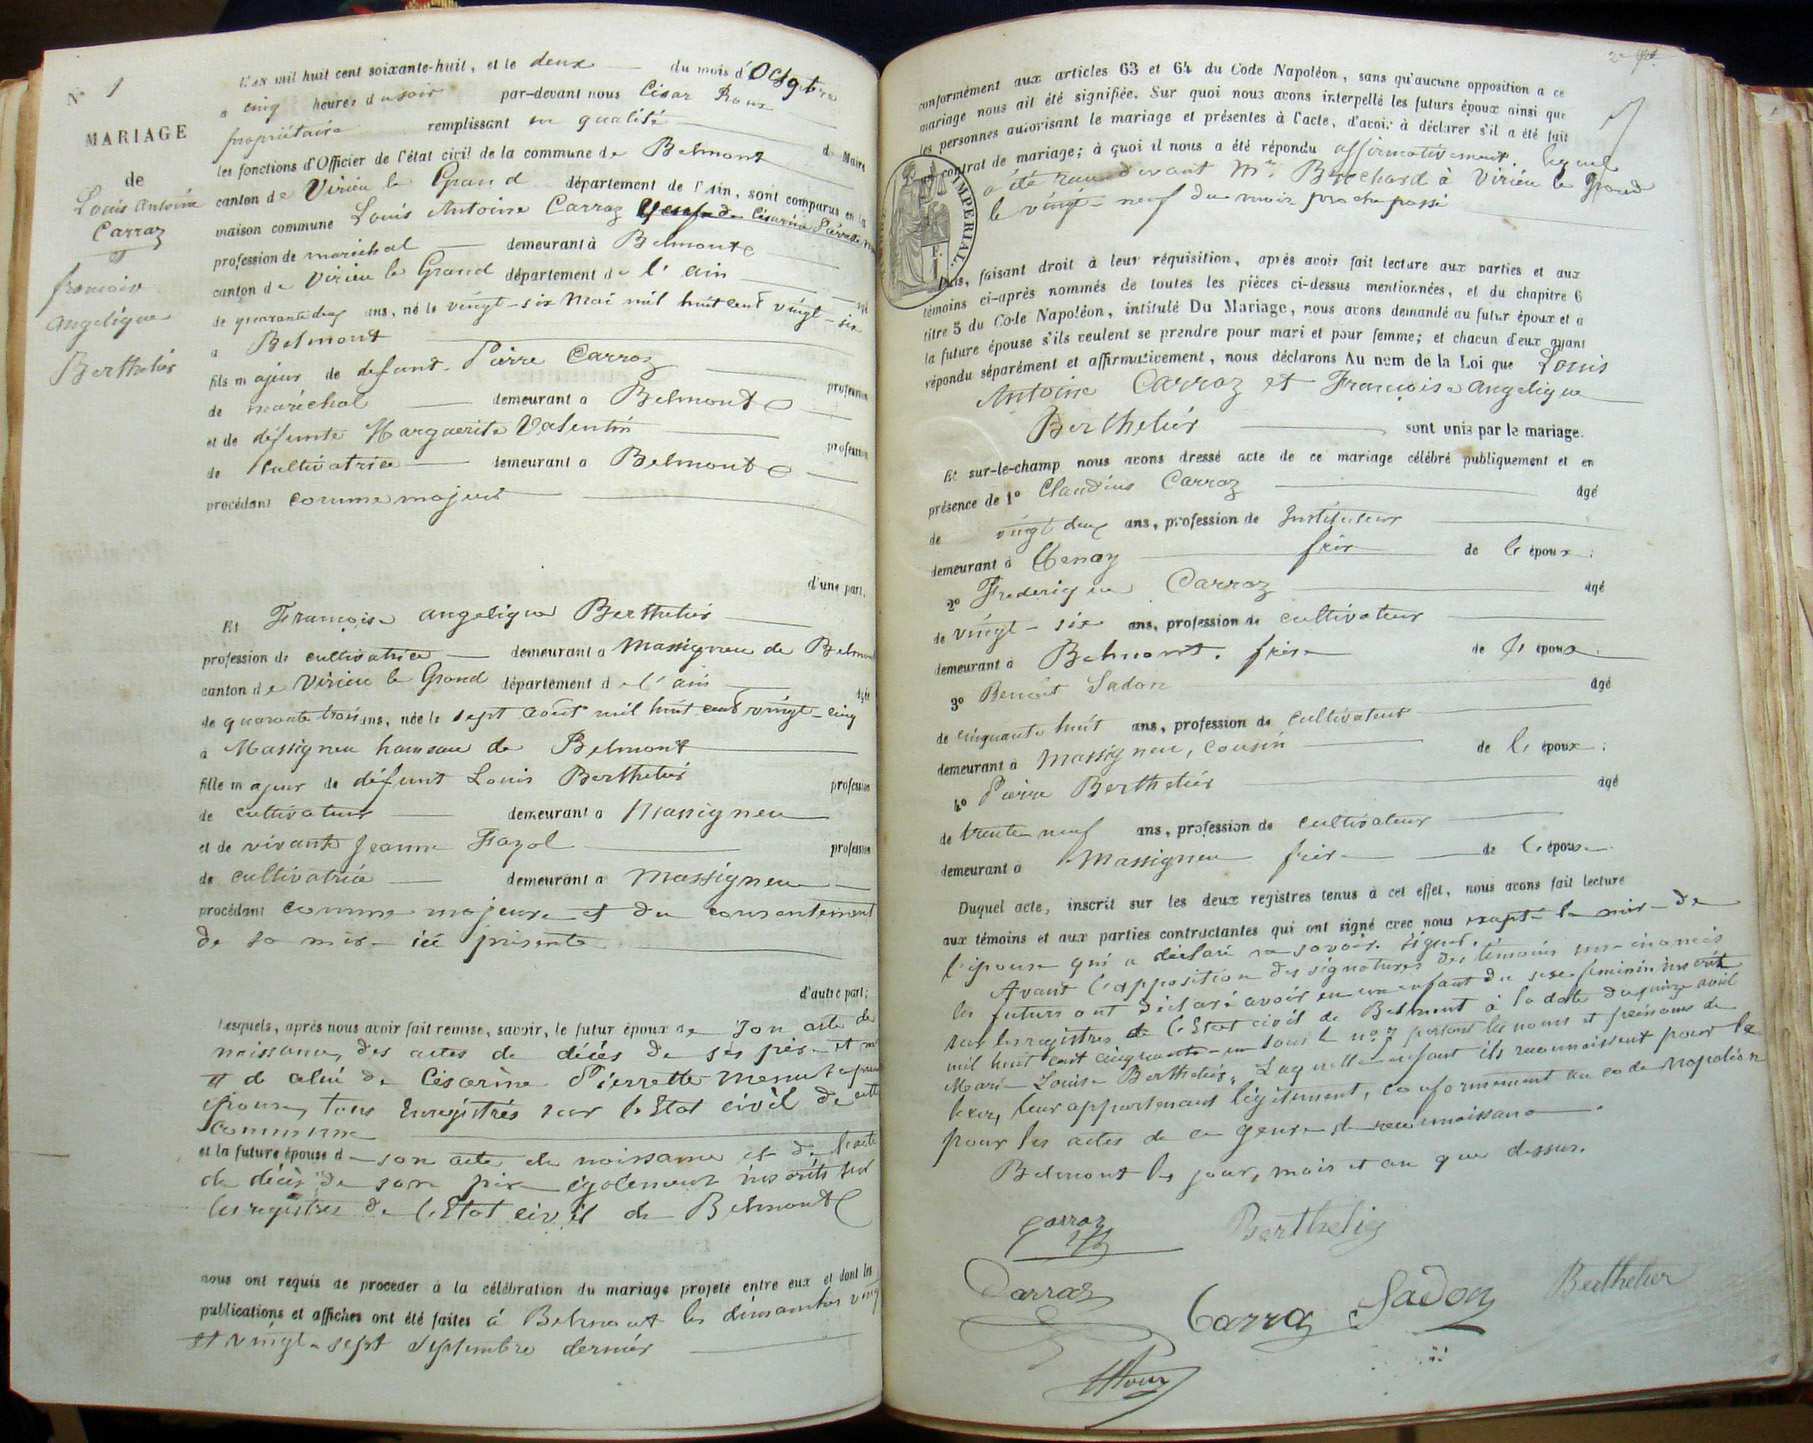 N° 1
MARIAGE
de
Louis Antoine
Carraz
françoise
angelique
Berthelier
L'an mil huit cent soixante-huit, et le deux du mois d'Octobre
a cinq heures du soir par-devant nous César Roux
propriétaire remplissant en qualité de Maire
les fonctions d'Officier de l'état civil de la commune de Belmont
canton de Virieu le Grand département de l'Ain, sont comparus en la
maison commune Louis Antoine Carraz veuf de Césarine Pierrette
profession de maréchal demeurant à Belmont
canton de Virieu le Grand département de l'ain agé
de quarante deux ans, né le vingt-six Mai mil huit cent vingt-six
a Belmont
fils majeur de defunt Pierre Carraz profession
de maréchal demeurant a Belmont
et de défunte Marguerite Valentin profession
de cultivatrice demeurant a Belmont
procédant comme majeur
d'une part,
Et Françoise angelique Berthelier
profession de cultivatrice demeurant a Massigneu de Belmont
canton de Virieu le Grand département de l'ain agée
de quarante trois ans, née le sept aout mil huit cent vingt-cinq
a Massigneu hameau de Belmont
fille majeur de défunt Louis Berthelier profession
de cultivateur demeurant a Massigneu
et de vivante Jeanne Fazol profession
de cultivatrice demeurant a Massigneu
procédant comme majeure et du consentement
de sa mère ici présente
d'autre part;
Lesquels, après nous avoir fait remise, savoir, le futur époux de Son acte de
naissance, des actes de décès de ses père et
et de celui de Césarine Pierrette Menu sa
épouse, tous enregistrés sur l'Etat civil de cette
commune
et la future épouse de son acte de naissance et de l'acte
de décès de son père également inscrits sur
les registres de l'Etat civil de Belmont
nous ont requis de procéder à la célébration du mariage projeté entre eux et dont les
publications et affiches ont été faites à Belmont les dimanches vingt
et vingt-sept septembre dernier
conformément aux articles 63 et 64 du Code Napoléon, sans qu'aucune opposition a ce
mariage nous ait été signifiée. Sur quoi nous avons interpellé les futurs époux ainsi que
les personnes autorisant le mariage et présentes à l'acte, d'avoir à déclarer s'il a été fait
contrat de mariage; à quoi il nous a été répondu affirmativement. lequel
a été reçu devant Me Bouchard à Virieu le Grand
le vingt-neuf du mois proche passé
IMPERIAL
1 F.
Puis, faisant droit à leur réquisition, après avoir fait lecture aux parties et aux
témoins ci-après nommés de toutes les pièces ci-dessus mentionnées, et du chapitre 6
titre 5 du Code Napoléon, intitulé Du Mariage, nous avons demandé au futur époux et a
la future épouse s'ils veulent se prendre pour mari et pour femme; et chacun d'eux ayant
répondu séparément et affirmativement, nous déclarons Au nom de la Loi que Louis
Antoine Carraz et Françoise angelique
Berthelier sont unis par le mariage.
Et sur-le-champ nous avons dressé acte de ce mariage célébré publiquement et en
présence de 1° Claudius Carraz agé
de vingt deux ans, profession de Instituteur
demeurant à Tenay frère de l'époux.
2° Frederique Carraz agé
de vingt-six ans, profession de cultivateur
demeurant à Belmont. frère de l'époux.
3° Benoit Sadon agé
de cinquante huit ans, profession de cultivateur
demeurant à Massigneu, cousin de l'époux.
4° Pierre Berthelier agé
de trente neuf ans, profession de cultivateur
demeurant a Massigneu frère de l'épouse
Duquel acte, inscrit sur les deux registres tenus à cet effet, nous avons fait lecture
aux témoins et aux parties contractantes qui ont signé avec nous excepté la mère de
l'épouse qui a déclaré ne savoir signer.
Avant l'apposition des signatures des témoins
les futurs ont déclaré avoir eu un enfant du sexe féminin inscrit
sur les registres de l'Etat civil de Belmont à la date du quinze avril
mil huit cent cinquante-un sous le n° 7 portant les noms et prénoms de
Marie Louise Berthelier, Laquelle enfant ils reconnaissent pour le
leur, leur appartenant légitement, conformément au code Napoléon
pour les actes de ce genre de reconnaissance.
Belmont les jour, mois et an que dessus.
Carraz
Berthelier
Carraz
Carraz
Sadon
Berthelier
Roux